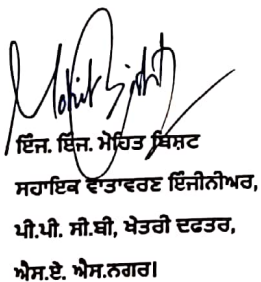 Mohit Bisht
ਇੰਜ. ਇੰਜ. ਮੋਹਿਤ ਬਿਸ਼ਟ
ਸਹਾਇਕ ਵਾਤਾਵਰਣ ਇੰਜੀਨੀਅਰ,
ਪੀ.ਪੀ. ਸੀ.ਬੀ, ਖੇਤਰੀ ਦਫਤਰ,
ਐਸ.ਏ. ਐਸ.ਨਗਰ।